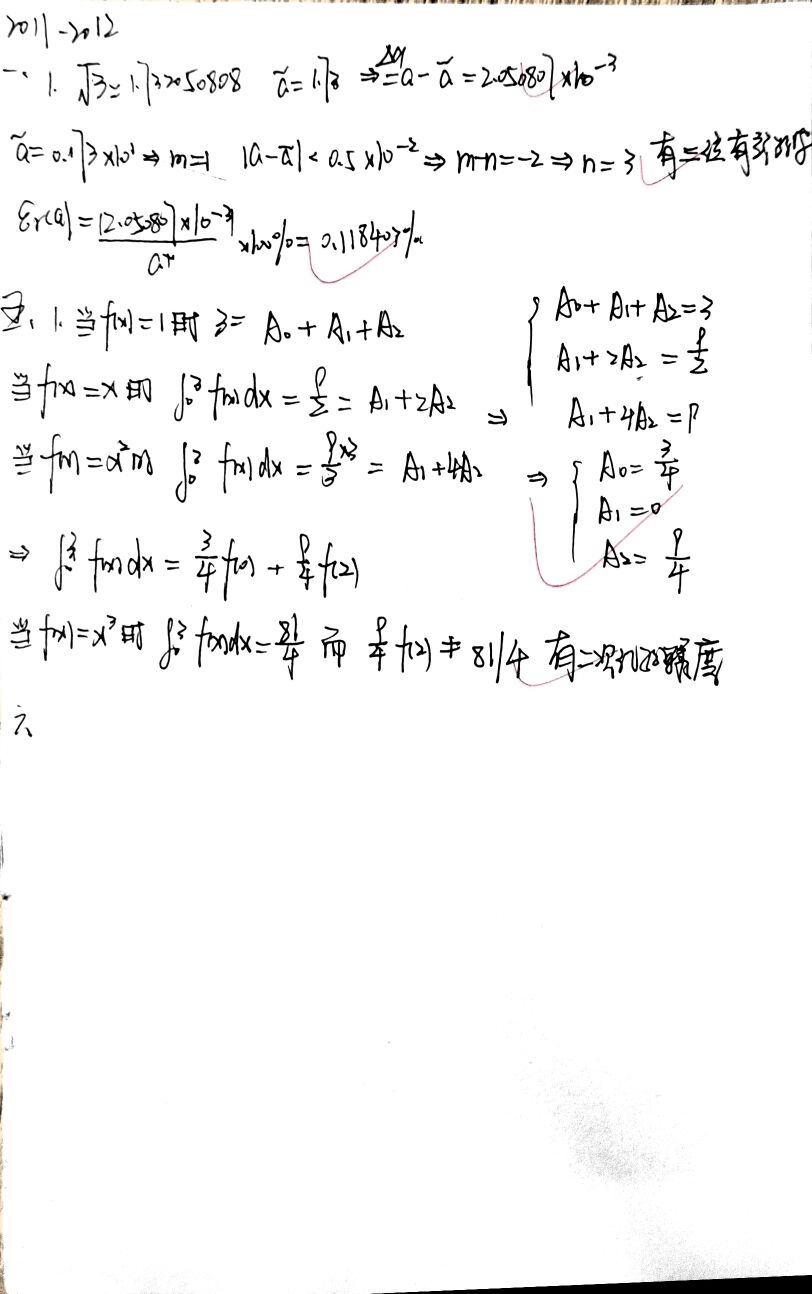 2011-2012
一、1. √3≃1.732050808 ã=1.73 ⇒Δa=a-ã=2.050807×10⁻³
ã=0.173×10¹⇒m=1 |a-ã|<0.5×10⁻²⇒m-n=-2⇒n=3 有三位有效数字
εr(a)=|2.050807×10⁻³|/a* ×100%=0.118403%
五、1. 当f(x)=1时 3=A₀+A₁+A₂
当f(x)=x时 ∫₀³f(x)dx=9/2=A₁+2A₂ ⇒
当f(x)=x²时 ∫₀³f(x)dx=9×3/3=A₁+4A₂
{A₀+A₁+A₂=3
A₁+2A₂=9/2
A₁+4A₂=9
⇒{A₀=3/4
A₁=0
A₂=9/4
⇒∫₀³f(x)dx=3/4f(0)+9/4f(2)
当f(x)=x³时 ∫₀³f(x)dx=81/4 而 9/4f(2)≠81/4 有二次代数精度
六